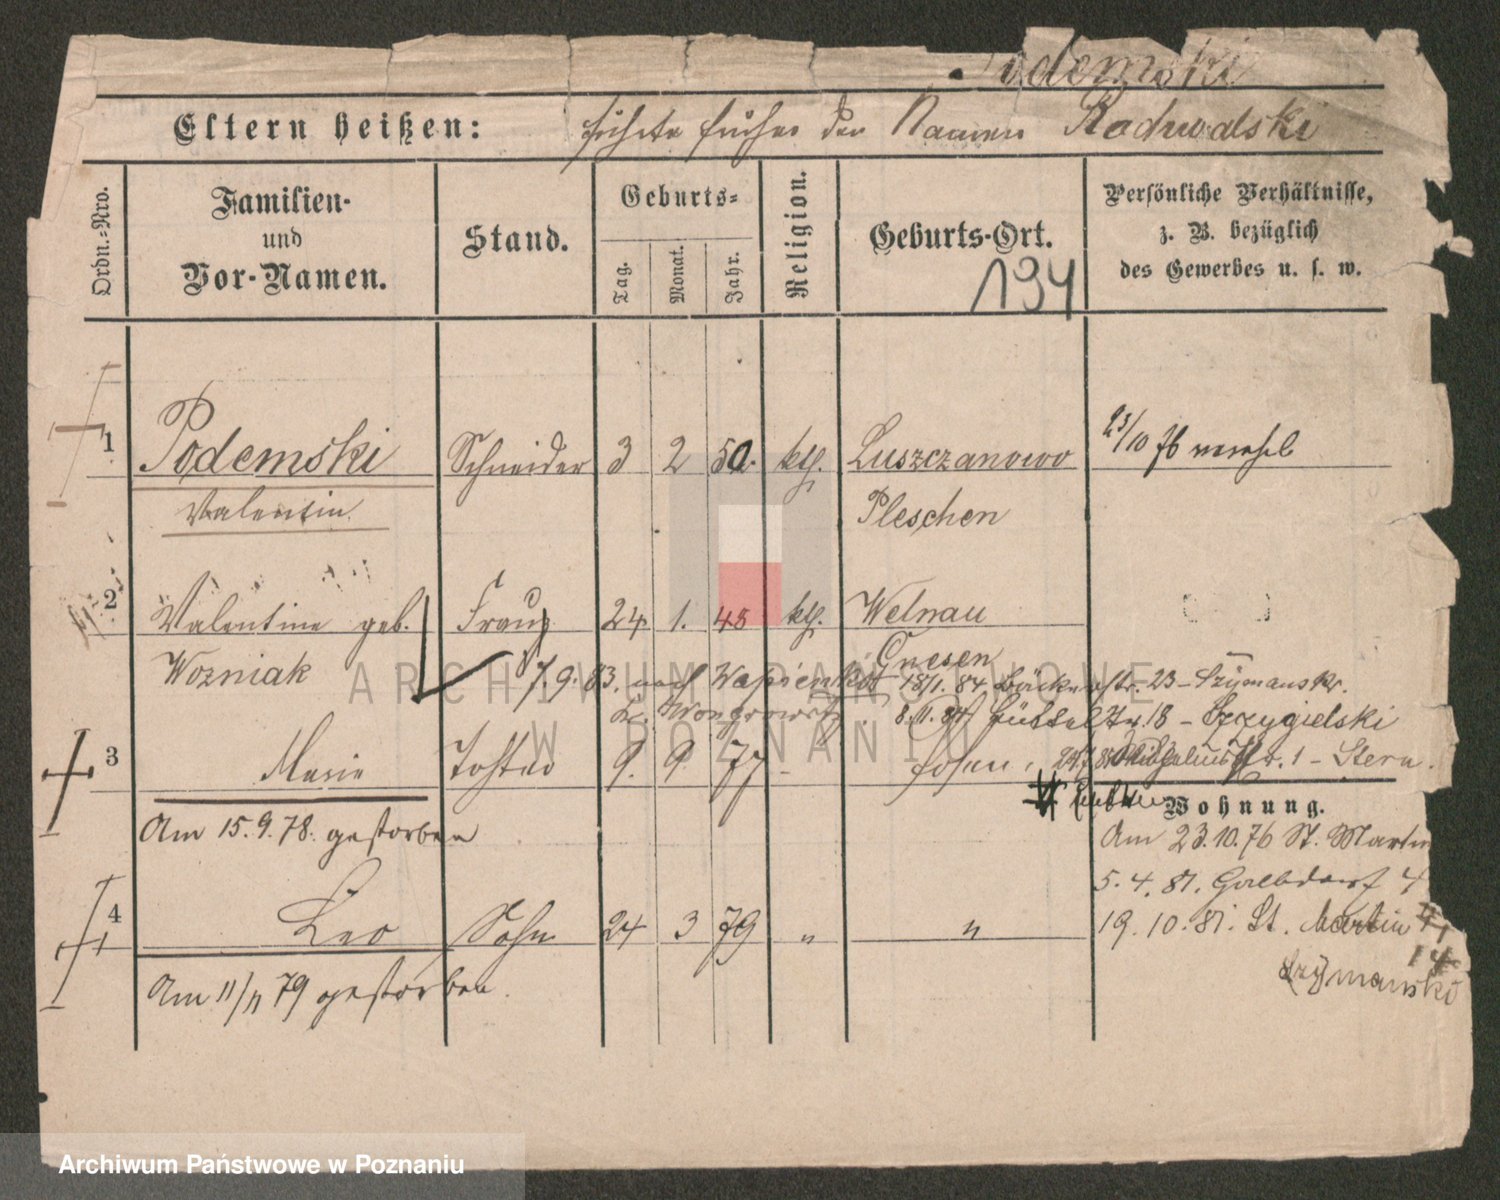 Podemski
Eltern heißen: führte früher den Namen Radwalski
Ordn.-Nro.
Familien- und Vor-Namen.
Stand.
Geburts-
Tag.
Monat.
Jahr.
Religion.
Geburts-Ort.
194
Persönliche Verhältnisse,
z. B. bezüglich
des Gewerbes u. s. w.
1 Podemski Schneider 3 2 50. kth. Luszczanowo 23/10 76
Valentin Pleschen
2 Valentine geb. Frau 24. 1. 45 kth. Welnau
Wozniak Gnesen
7.9.83. nach 18/1. 84. Bäckerstr. 23 - Szymanski.
Kr. Wongrowitz. 8.11.84 18 - Szczygielski
3 Marie Tochter 9. 9 77 Posen, 1 - Stern.
Wohnung.
Am 15.9.78. gestorben
Am 23.10.76 St. Martin
5.4.81. 4
4 Leo Sohn 24 3 79 " "
19.10.81. St. Martin
14
Szymanski
Am 11/11 79 gestorben.
ARCHIWUM PAŃSTWOWE
W POZNANIU
Archiwum Państwowe w Poznaniu